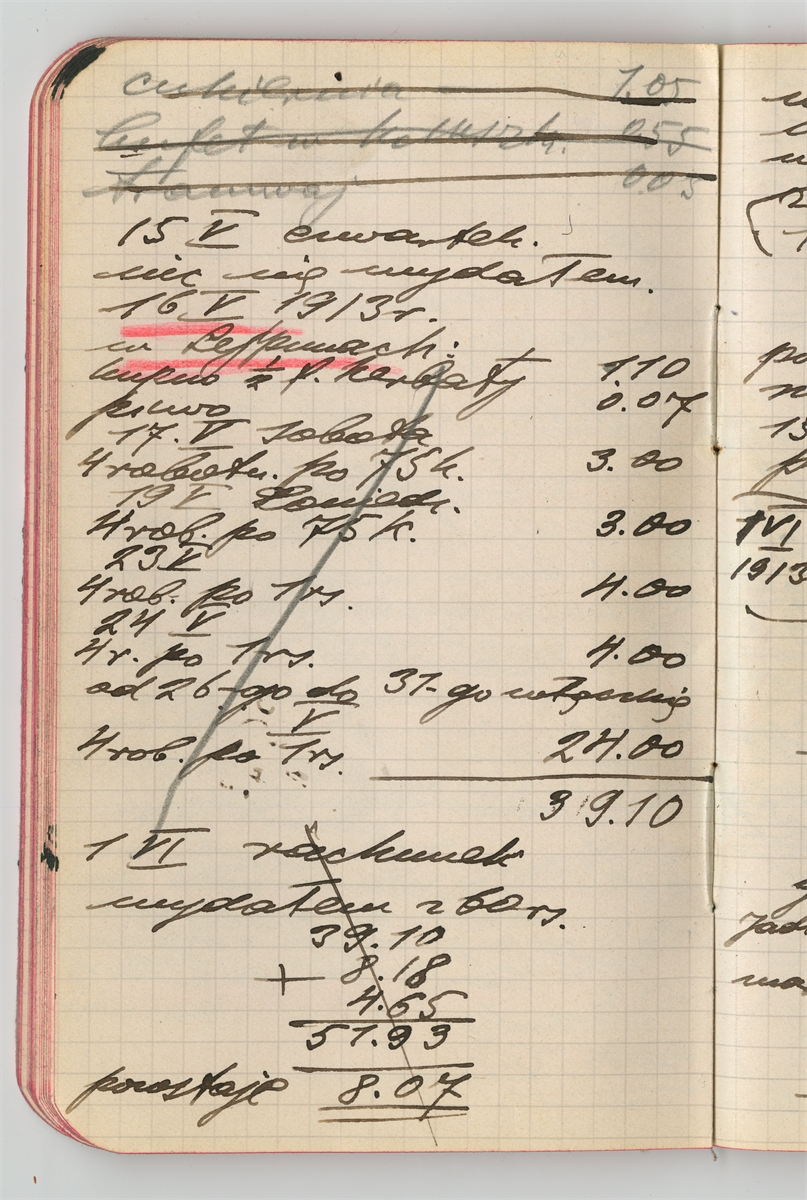 cukiernia 1.05
bufet w Koluszk. 0.55
tramwaj 0.05
15 V czwartek.
nic nie wydałem.
16 V 1913 r.
w
kupno ½ f. herbaty 1.10
piwo 0.07
17. V sobota
4 robotn. po 75 k. 3.00
19 V Poniedz.
4 rob. po 75 k. 3.00
23 V
4 rob. po 1 rs. 4.00
24 V
4 r. po 1 rs. 4.00
od 26-go do 31-go włącznie
V
4 rob. po 1 rs. 24.00
39.10
1 VI rachunek
wydałem z 60 rs.
39.10
+ 8.18
4.65
51.93
pozostaje 8.07
1 VI
1913